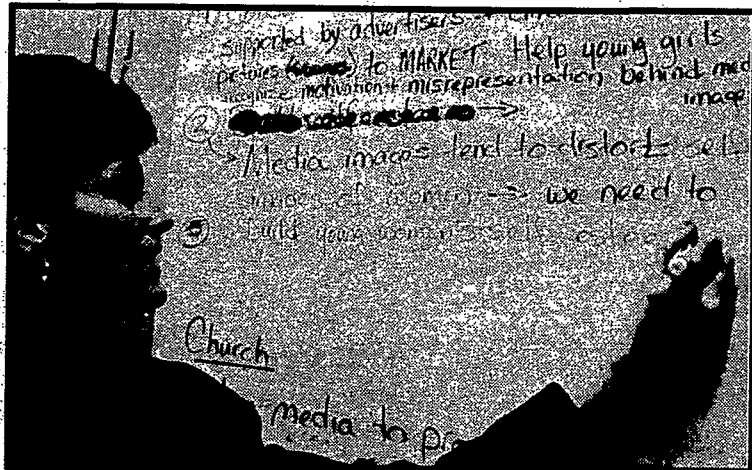 supported by advertisers
pictures to MARKET Help young girls
recognize motivation + misrepresentation behind med
image
②
Media images tend to distort sel
images of women → we need to
③ build young women's
Church
media to pr